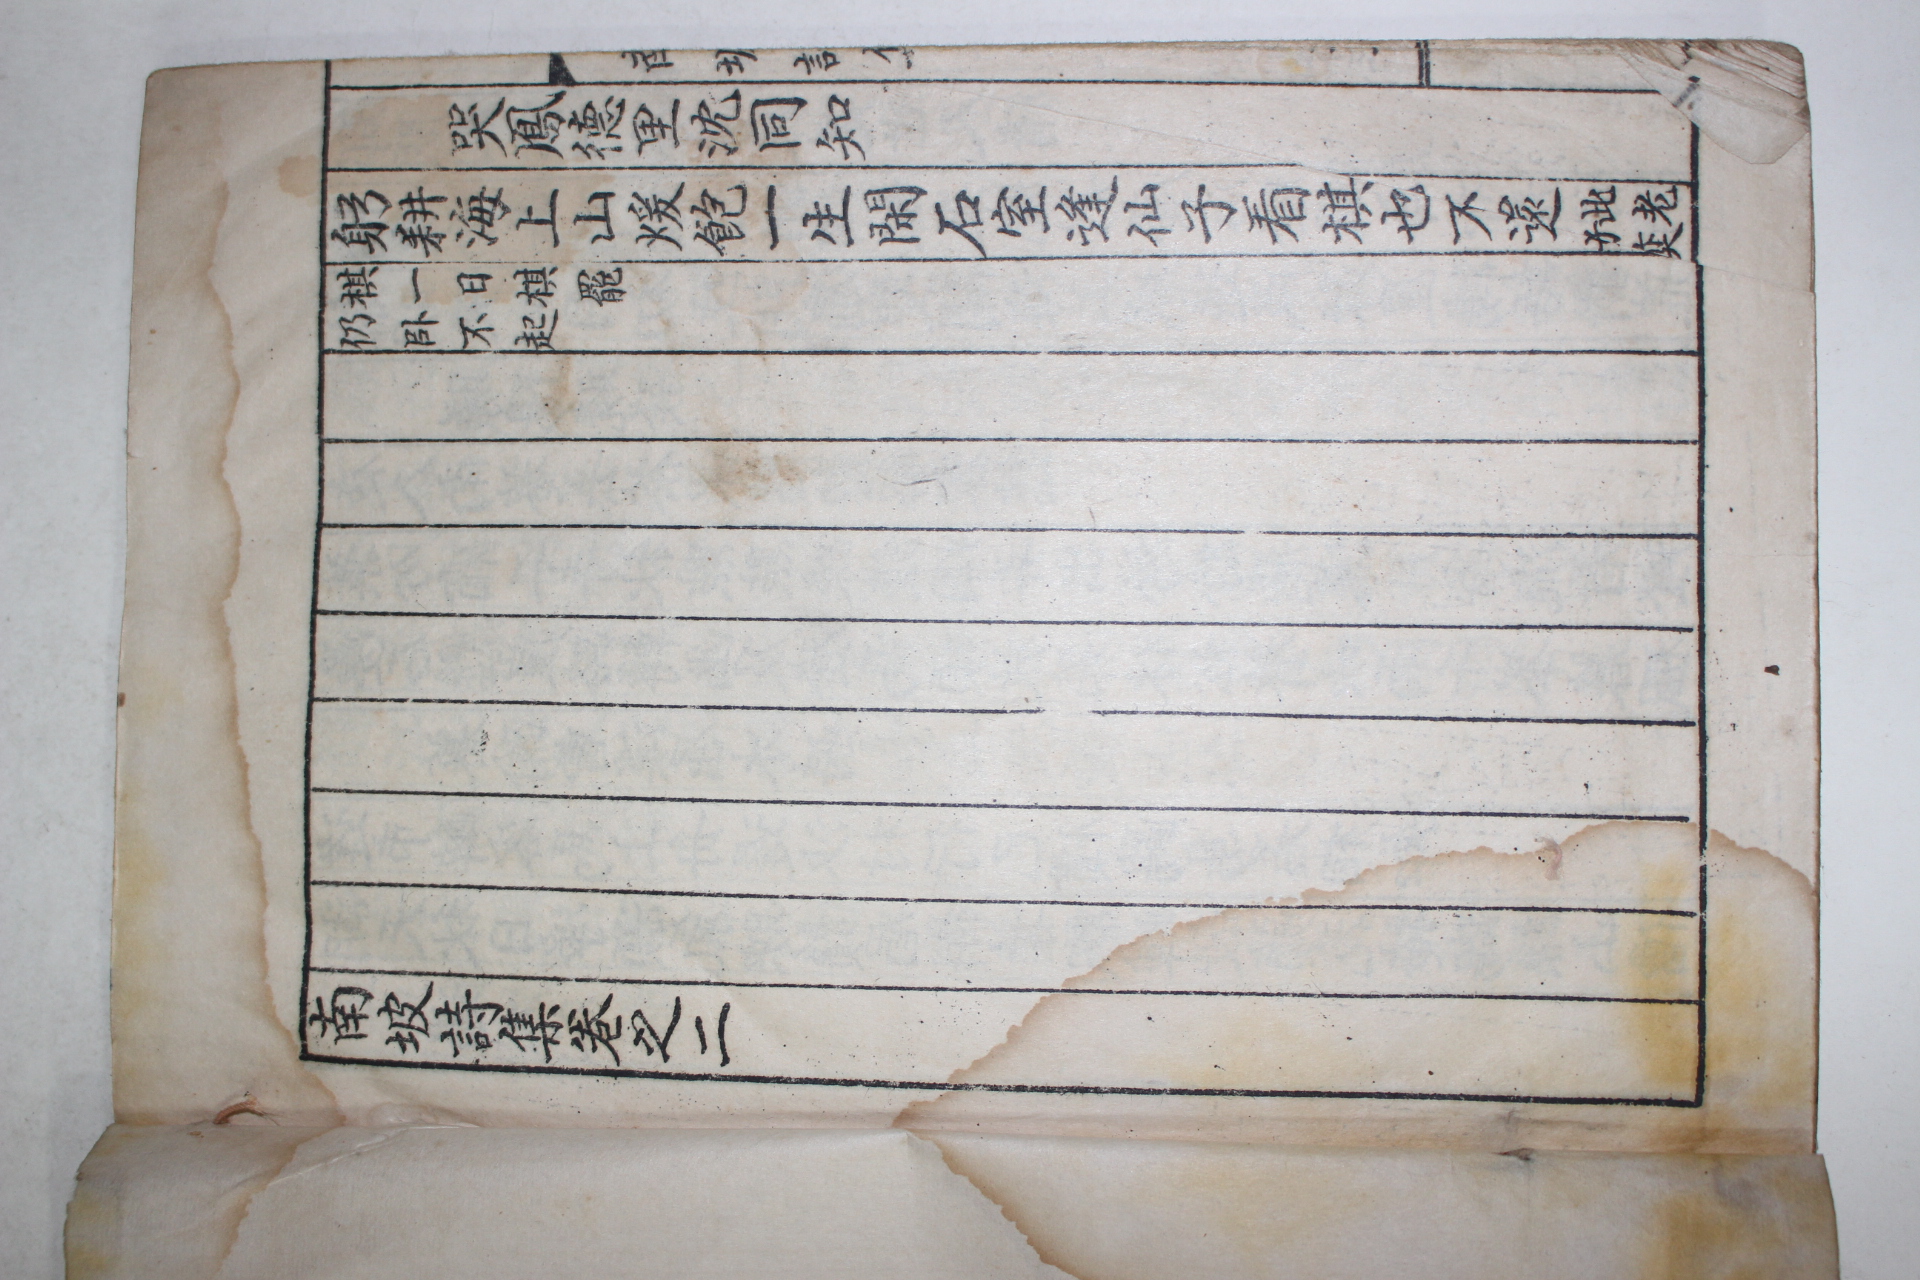 哭鳳德里沈同知
躬耕海上山煖飽一生閑石室逢仙子看棋也不還此老於奕
棋一日棋罷仍卧不起
南坡詩集卷之二